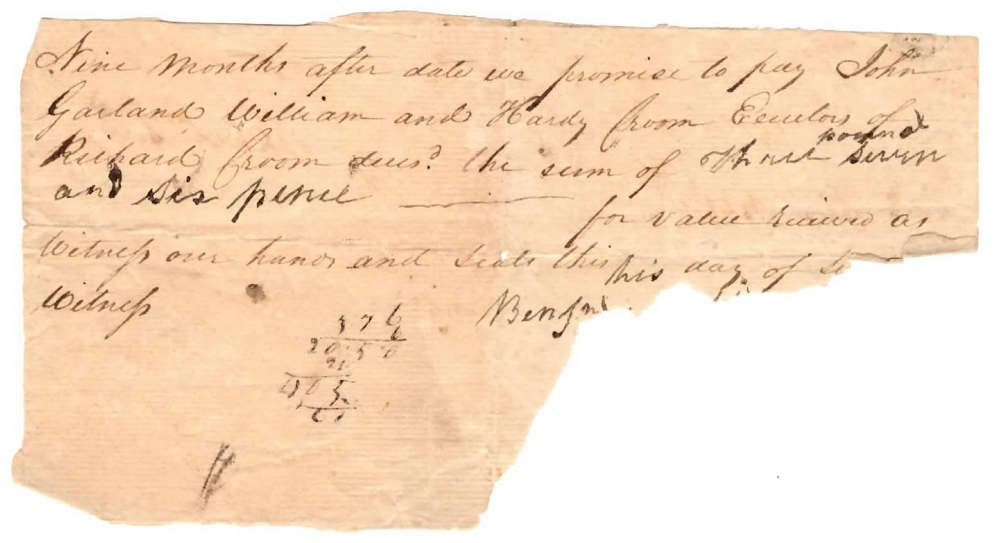 Nine Months after date we promise to pay John
Garland William and Hardy Croom Eecutors of
Richard Croom decsd. the sum of Three pound seven
and six pence
for value recieved as
Witness our hands and seals this his day of
Witness
3 7 6
6
20 5 0
20
405